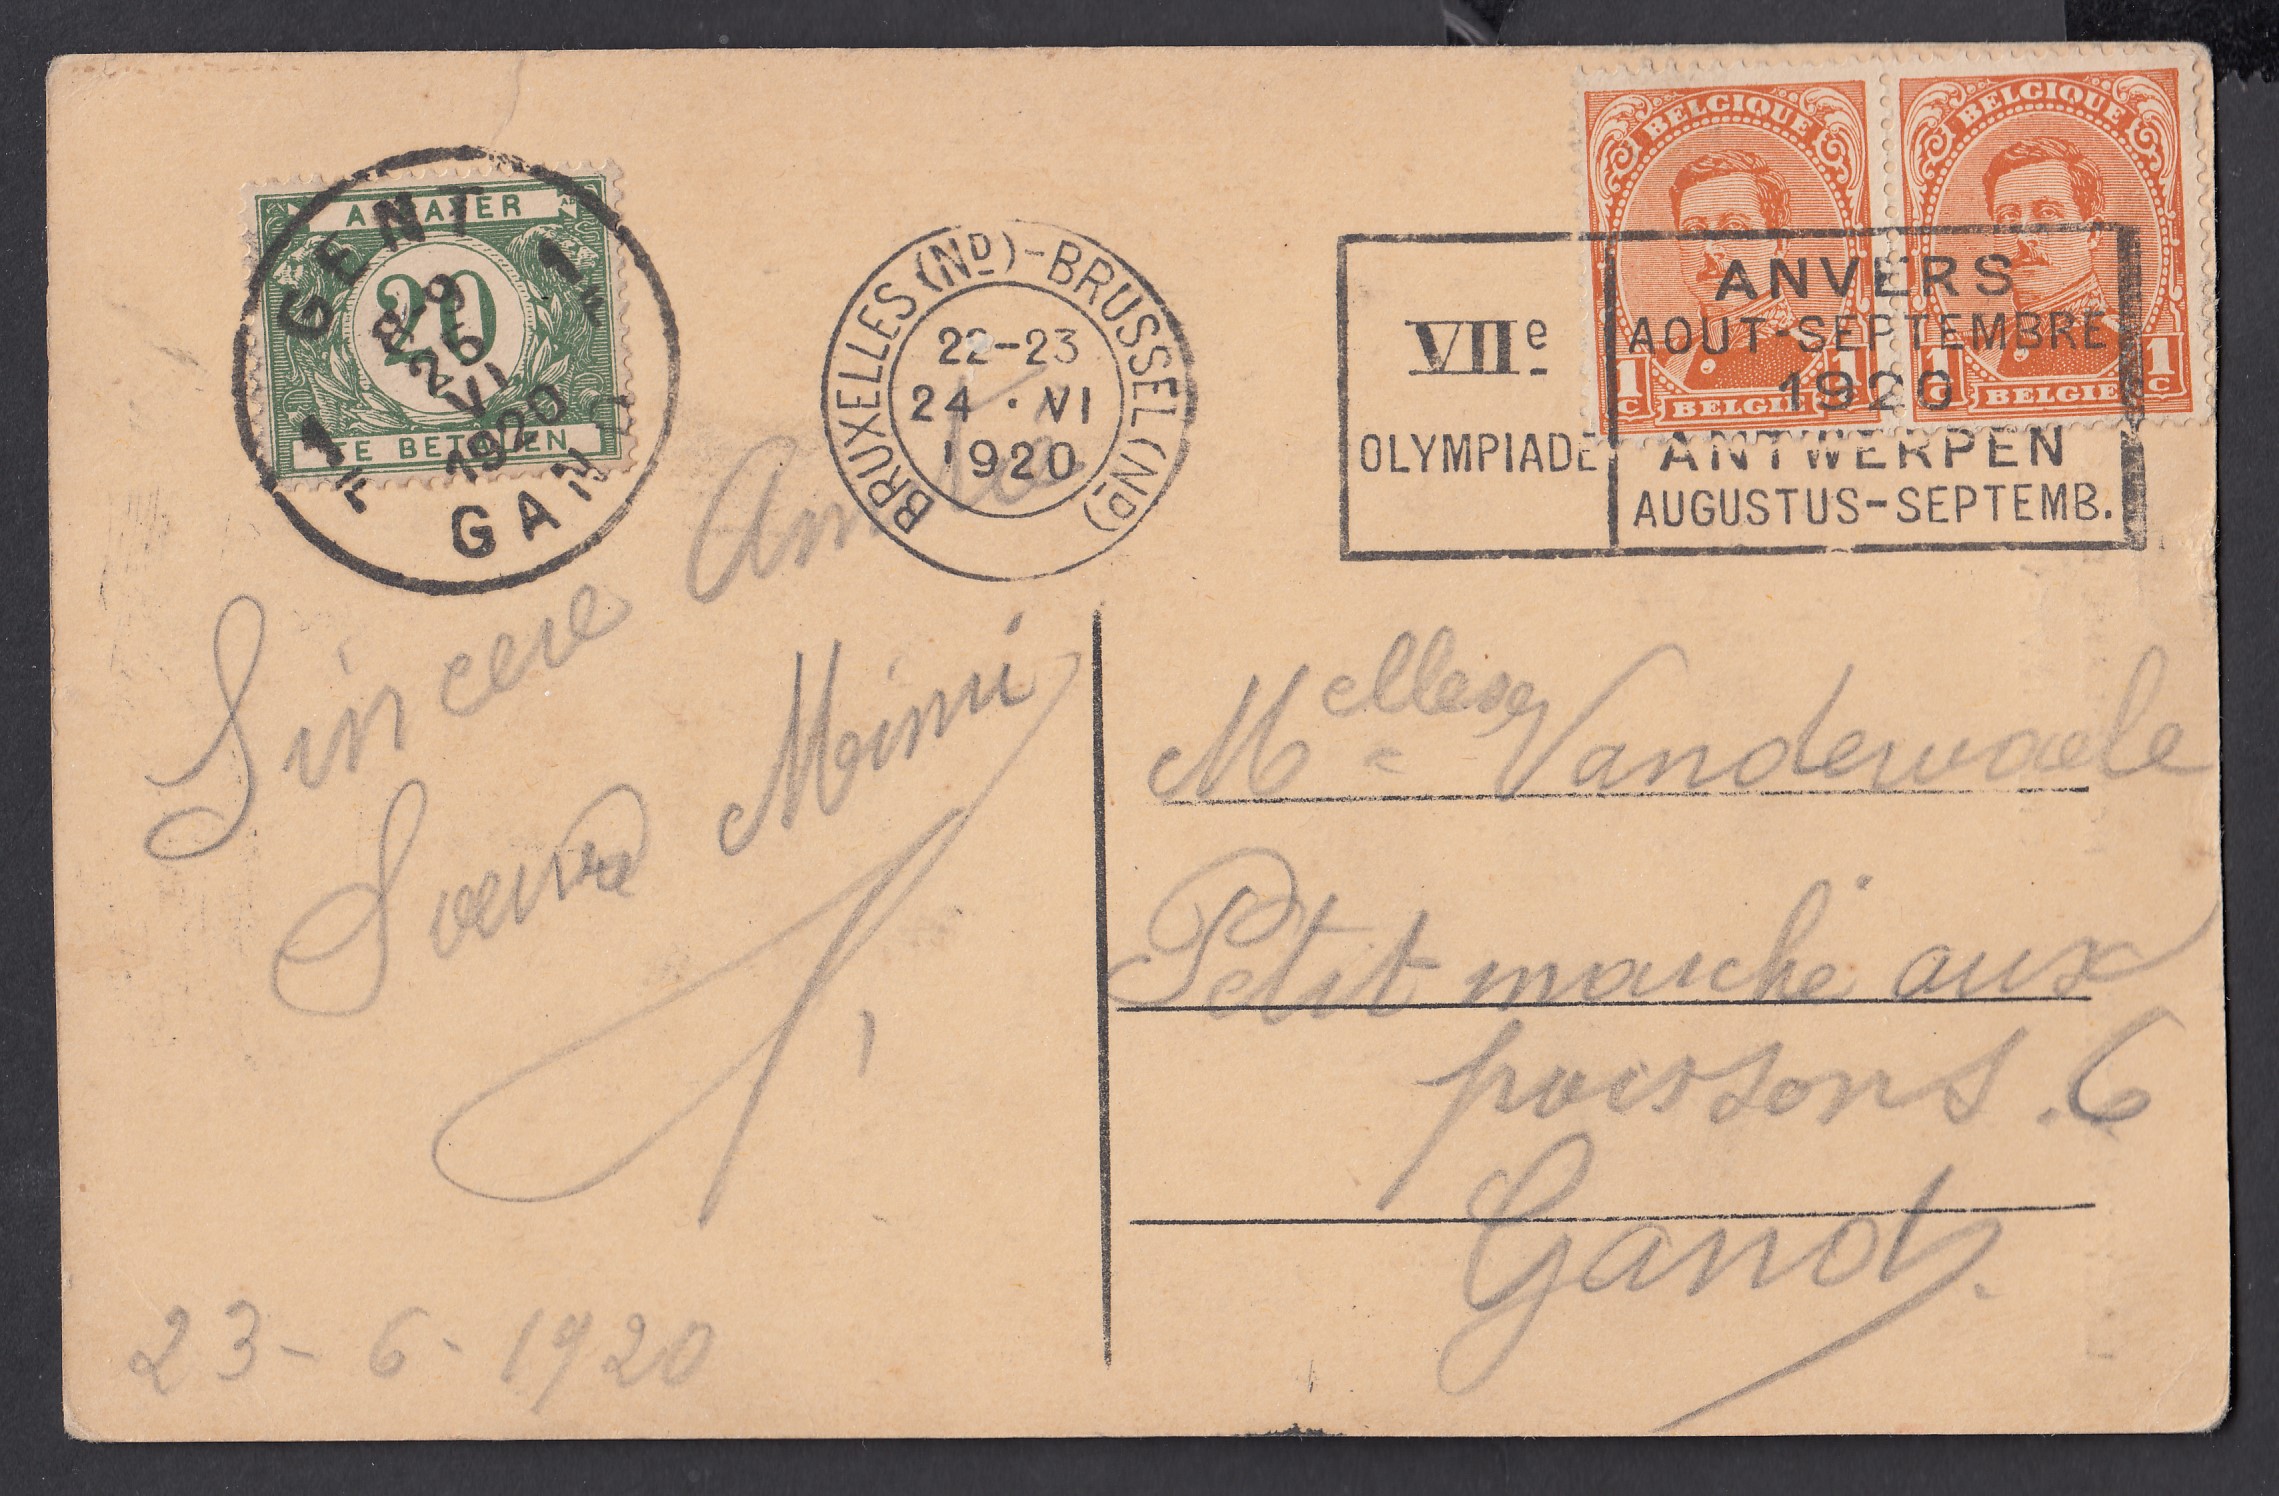 A PAYER
20
TE BETALEN
GENT 1
8-9
25
VI
1920
1 GAND
BRUXELLES (ND)-BRUSSEL (ND)
22-23
24 · VI
1920
VIIe
OLYMPIADE
ANVERS
AOUT-SEPTEMBRE
1920
ANTWERPEN
AUGUSTUS-SEPTEMB.
BELGIQUE
1C 1C
BELGIE
BELGIQUE
1C 1C
BELGIE
Sincere
Mimi
23-6-1920
Melles Vanderwaele
Petit marché aux
poissons. 6
Gand.